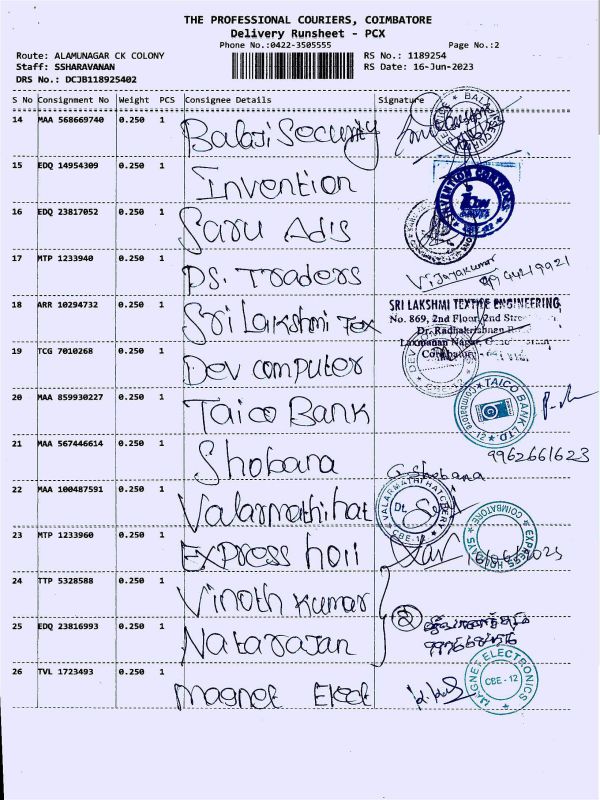 THE PROFESSIONAL COURIERS, COIMBATORE
Delivery Runsheet - PCX
Phone No.:0422-3505555 Page No.:2
Route: ALAMUNAGAR CK COLONY RS No.: 1189254
Staff: SSHARAVANAN RS Date: 16-Jun-2023
DRS No.: DCJB118925402
S No Consignment No Weight PCS Consignee Details Signature
14 MAA 568669740 0.250 1 Balaji Security
15 EDQ 14954309 0.250 1 Invention
16 EDQ 23817052 0.250 1 Saru Adis
17 MTP 1233940 0.250 1 DS. Traders Vijayakumar
18 ARR 10294732 0.250 1 Sri Lakshmi Tex SRI LAKSHMI TEXTILE ENGINEERING
No. 869, 2nd Floor, 2nd
Dr. Radhakrishnan
Laxmanan Nagar,
19 TCG 7010268 0.250 1 Dev computer
20 MAA 859930227 0.250 1 Taico Bank TAICO BANK LTD
21 MAA 567446614 0.250 1 Shobana 9962661623
G. Shobana
22 MAA 100487591 0.250 1 Valarmathi hat VALARMATHI HATCHERY CBE-12
23 MTP 1233960 0.250 1 Express holi COIMBATORE EXPRESS HOLIDAYS
24 TTP 5328588 0.250 1 Vinoth Kumar
25 EDQ 23816993 0.250 1 Natarajan
26 TVL 1723493 0.250 1 Magnet Elect MAGNET ELECTRONICS CBE - 12